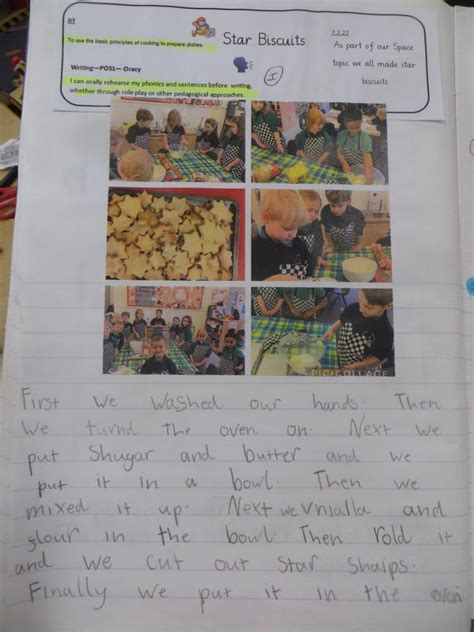 DT
To use the basic principles of cooking to prepare dishes.
Writing—POS1— Oracy
I can orally rehearse my phonics and sentences before writing,
whether through role play or other pedagogical approaches.
Star Biscuits
I
7.2.22
As part of our Space
topic we all made star
biscuits
PIC•COLLAGE
First we washed our hands. Then
We turnd the oven on. Next we
put Shugar and butter and we
put it in a bowl. Then we
mixed it up. Next we vnialla and
flour in the bowl. Then rold it
and we cut out star shaips.
Finally we put it in the oven